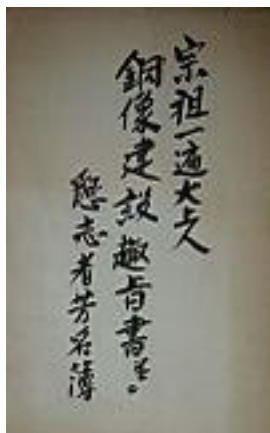 宗祖一遍大上人
銅像建設趣旨書並ニ
懇志者芳名簿